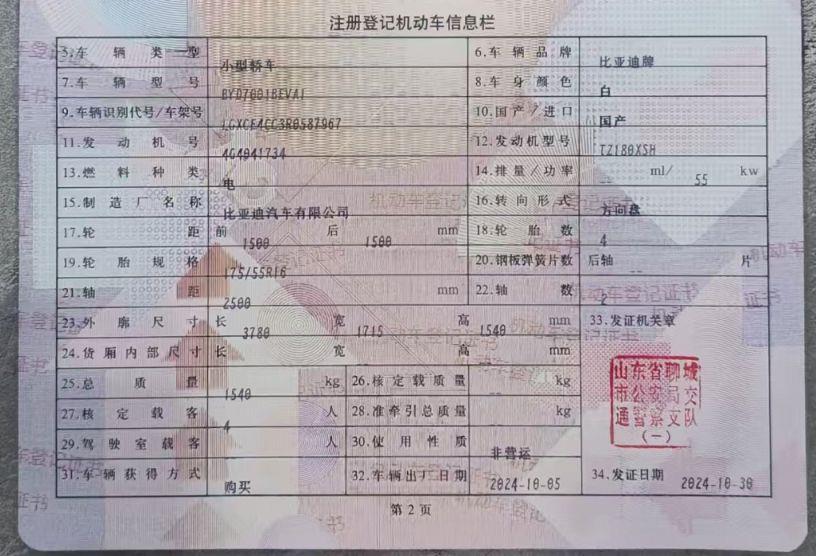 注册登记机动车信息栏
5.车辆类型 小型轿车 6.车辆品牌 比亚迪牌
7.车辆型号 BYD7001BEVA1 8.车身颜色 白
9.车辆识别代号/车架号 LGXCE4CC3R0587967 10.国产/进口 国产
11.发动机号 4G4041734 12.发动机型号 TZ180XSH
13.燃料种类 电 14.排量/功率 -- ml/ 55 kw
15.制造厂名称 比亚迪汽车有限公司 16.转向形式 方向盘
17.轮距 前 1500 后 1500 mm 18.轮胎数 4
19.轮胎规格 175/55R16 20.钢板弹簧片数 后轴 -- 片
21.轴距 2500 mm 22.轴数 2
23.外廓尺寸 长 3780 宽 1715 高 1540 mm 33.发证机关章
24.货厢内部尺寸 长 宽 高 mm
25.总质量 1540 kg 26.核定载质量 kg
27.核定载客 4 人 28.准牵引总质量 kg
29.驾驶室载客 人 30.使用性质 非营运
31.车辆获得方式 购买 32.车辆出厂日期 2024-10-05 34.发证日期 2024-10-30
山东省聊城
市公安局交
通警察支队
(一)
第2页